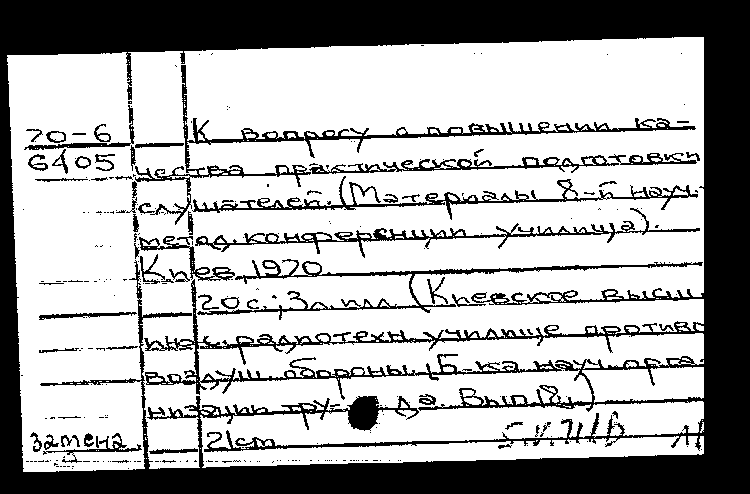 70-6 К вопросу о повышении ка-
6405 чества практической подготовки
слушателей. (Материалы 8-й науч.-
метод. конференции училища).
Киев, 1970.
20 с.; 3 л. илл. (Киевское высш.
инж. радиотехн. училище противо
воздуш. обороны. Б-ка науч. орга-
низации тру- да. Вып. 18.)
замена 21 cm